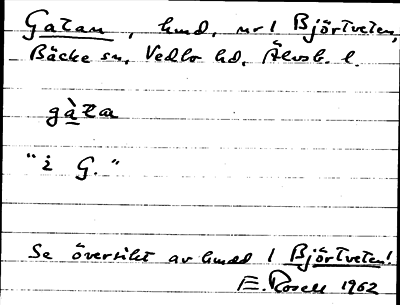 Gatan, hmd, nr 1 Björtveten,
Bäcke sn, Vedbo hd, Älvsb. l.
gàta
"i G."
Se översikt av hmd 1 Björtveten!
E. Rosell 1962